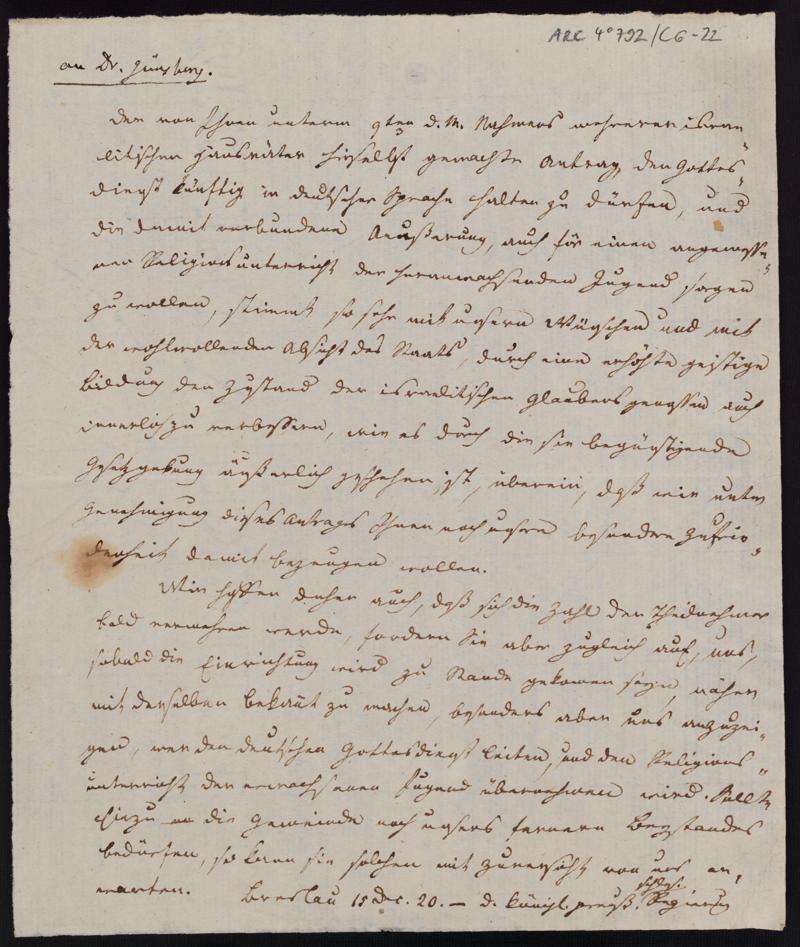 ARC 4° 792/C6-22
an Dr. Günsburg.
Der von Ihnen unterm 9ten d. M. Nahmens mehrerer israe„
litischer Hausväter hieselbst gemachte Antrag, den Gottes„
dienst künftig in deutscher Sprache halten zu dürfen, und
die damit verbundene Aeußerung, auch für einen angemesse„
nen Religionsunterricht der heranwachsenden Jugend sorgen
zu wollen, stimmt so sehr mit unsern Wünschen und mit
der wohlwollenden Absicht des Staats, durch eine erhöhte geistige
Bildung den Zustand der israelitischen Glaubensgenossen auch
innerlich zu verbessern, wie es durch die sie begünstigende
Gesetzgebung äußerlich geschehen ist, überein, daß wir unter
Genehmigung dieses Antrages Ihnen noch unsere besondere Zufrie„
denheit damit bezeugen wollen.
Wir hoffen daher auch, daß sich die Zahl der Theilnehmer
bald vermehren werde, fordern Sie aber zugleich auf, uns,
sobald die Einrichtung wird zu Stande gekomen seyn, näher
mit derselben bekañt zu machen, besonders aber uns anzuzei„
gen, wer den deutschen Gottesdienst leiten, und den Religions„
unterricht der erwachsenen Jugend übernehmen wird. Sollte
hiezu die Gemeinde noch unsers fernern Beystandes
bedürfen, so kann sie solchen mit Zuversicht von uns er„
warten. Breslau 15 Dec. 20. – d. Königl. preuß. schles. Regierung